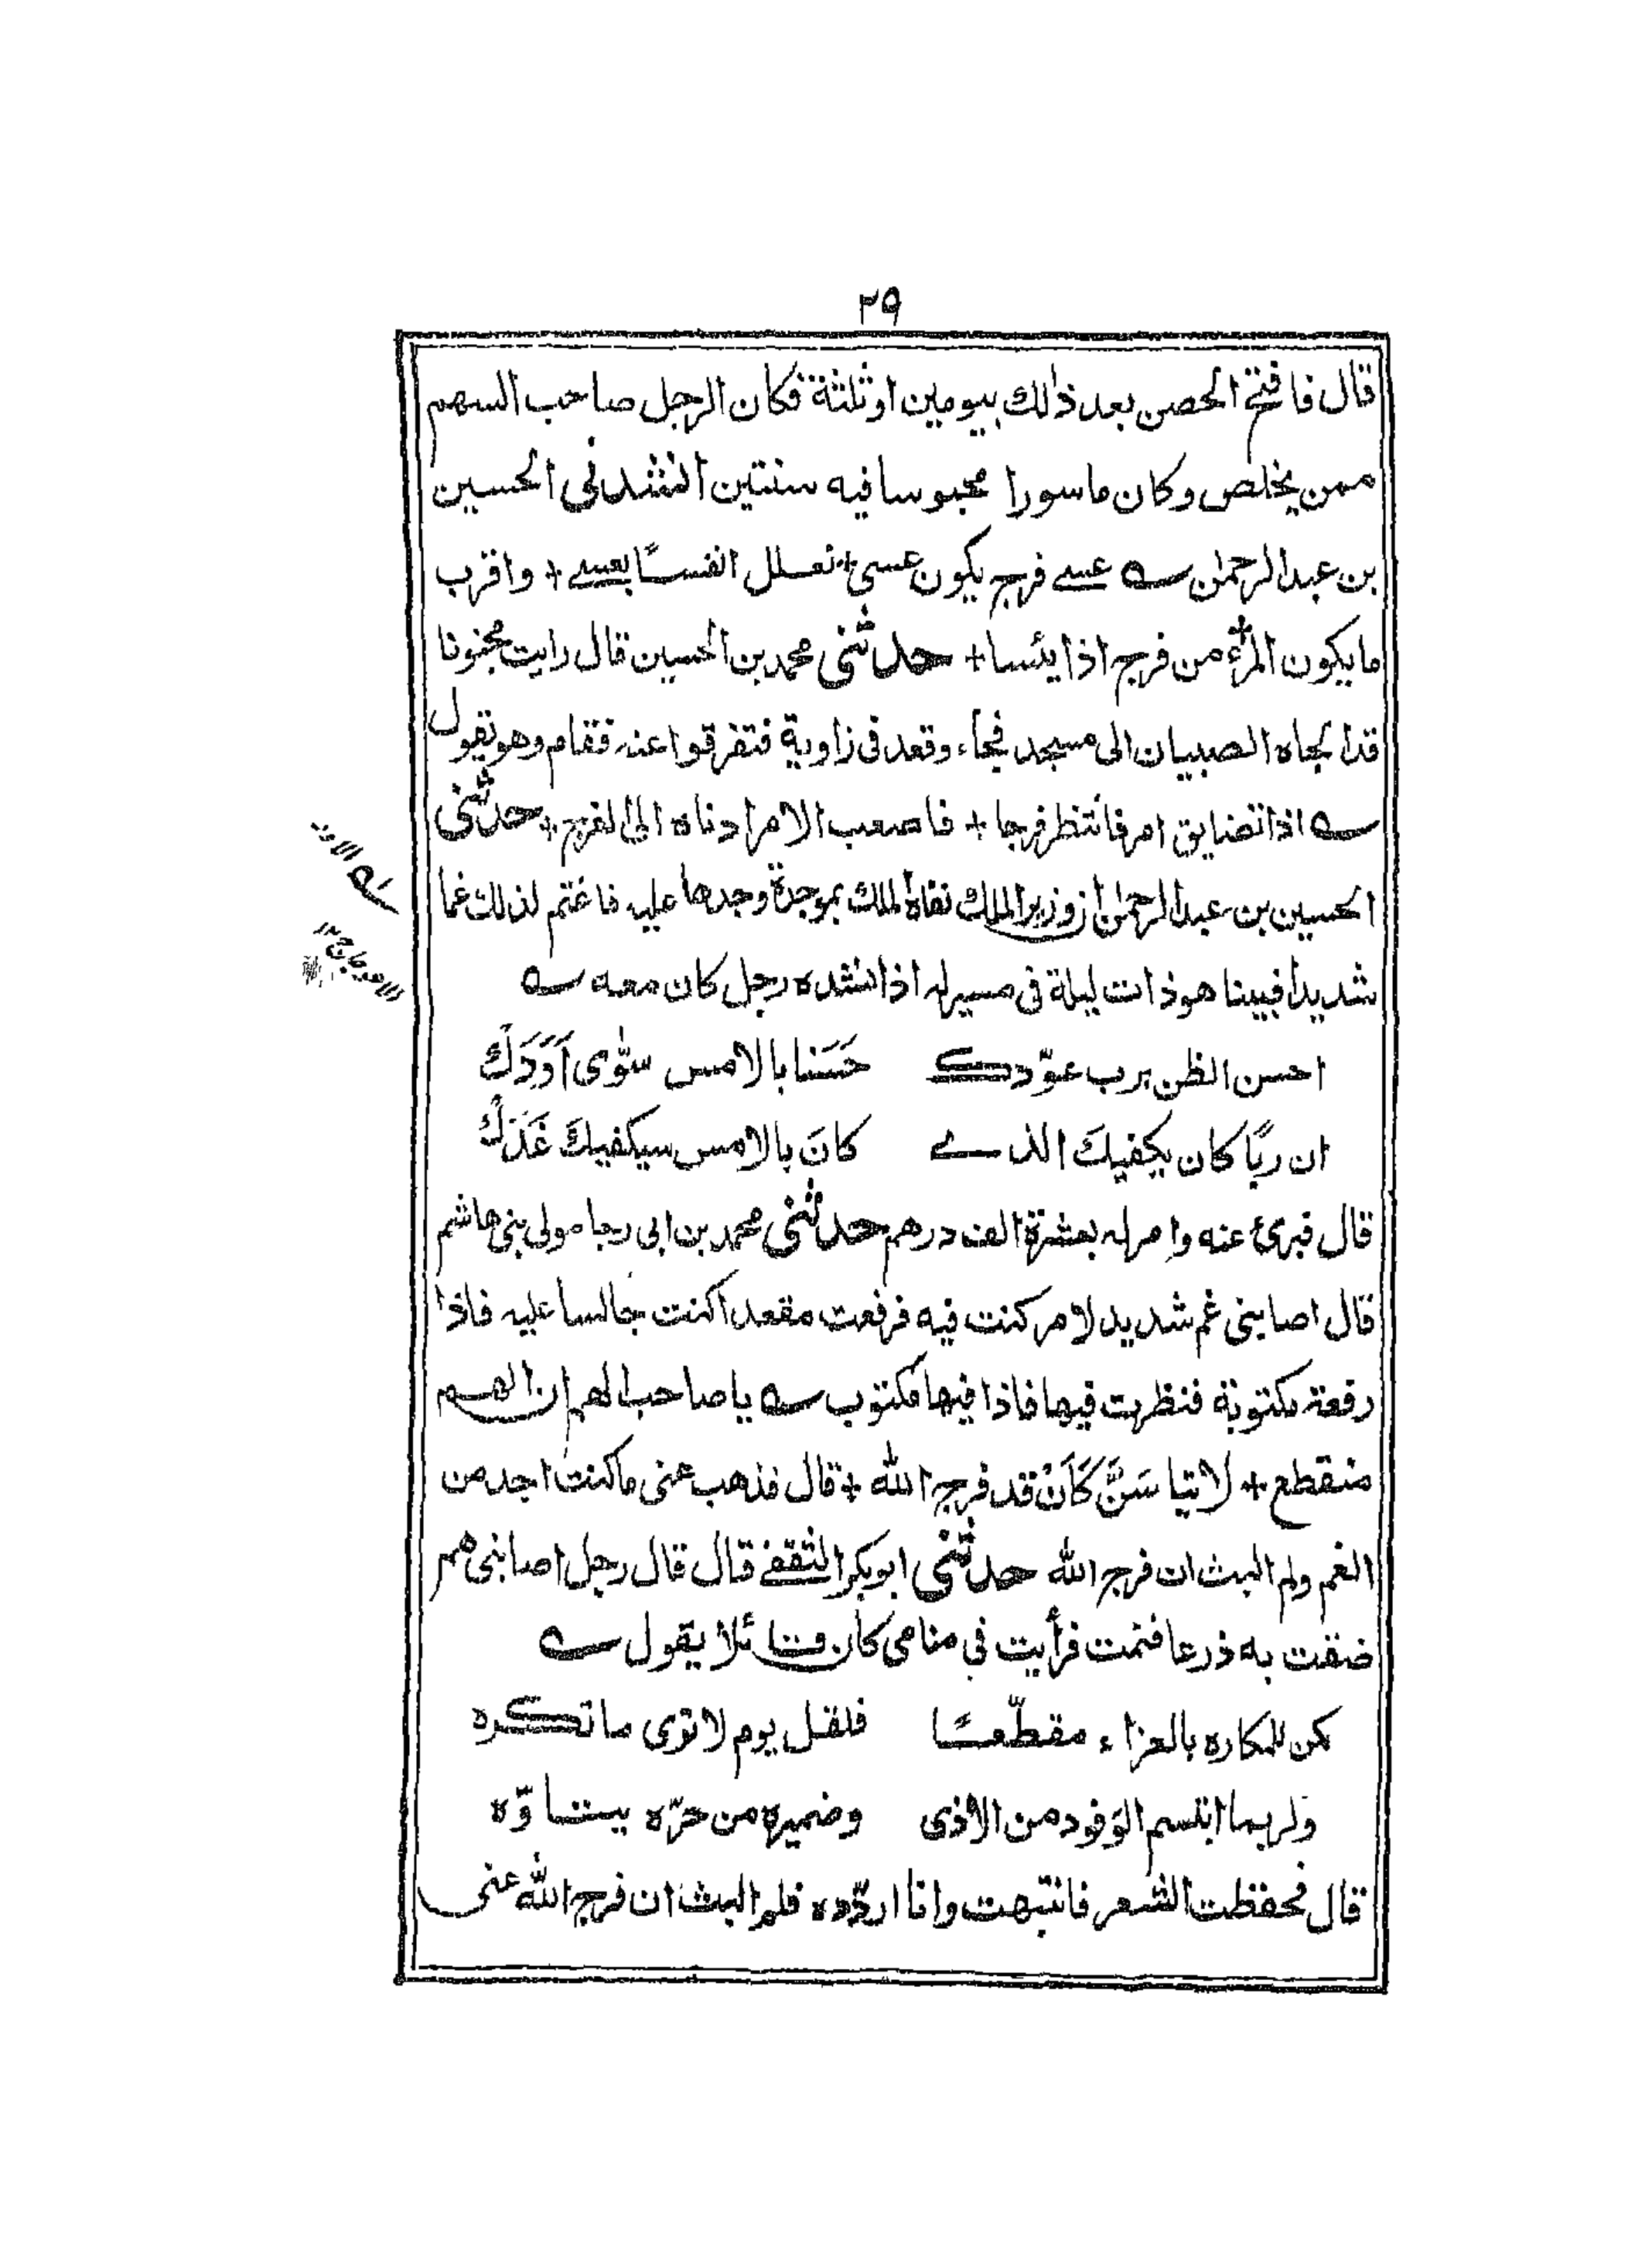 ٢٩
قال فافتتح الحصن بعد ذالك بيومين او ثلثة فكان الرجل صاحب السهم
ممن يخلص وكان ماسورا محبوسا فيه سنتين انشدنى الحسين
بن عبد الرحمٰن ؎ عسے فرج يكون عسى + نعلل انفسًا بعسے + واقرب
ما يكون المرء من فرج اذا يئسا + حدثنى محمد بن الحسين قال رايت مجنونا
قد الجاه الصبيان الى مسجد فجاء وقعد فى زاوية فتفرقوا عنه فقام وهو يقول
؎ اذا تضايق امر فانتظر فرجا + فاصعب الامر ادناه الى الفرج + حدثنى
الحسين بن عبد الرحمٰن ان وزير الملك نفاه الملك بموجدة وجدها عليه فاغتم لذلك غما
شديدا فبينا هو ذات ليلة فى مسير له اذ انشده رجل كان معه ؎
احسن الظن برب عوّدك حَسَنا بالامس سوّٰى اَوَدَكْ
ان ربًا كان يكفيكَ الذے كانَ بالامس سيكفيكَ غَدَكْ
قال فبرئ عنه وامر له بعشرة الف درهم حدثنى محمد بن ابى رجا مولى بنى هاشم
قال اصابنى غم شديد لامر كنت فيه فرفعت مقعدا كنت جالسا عليه فاذا
رقعة مكتوبة فنظرت فيها فاذا فيها مكتوب ؎ يا صاحب الهم ان الهم
منقطع + لا تيا سَنَّ كَاَنْ قد فرج الله + قال فذهب عنى ما كنت اجد من
الغم ولم البث ان فرج الله حدثنى ابو بكر الثقفے قال قال رجل اصابنى هم
ضقت به ذرعا فنمت فرأيت فى منامى كان قائلا يقول ؎
كن للمكاره بالعزاء مقطّعًا فلقل يوم لا ترى ما تكره
ولربما ابتسم الوَقود من الاذى وضميره من حرّه يتاوّه
قال فحفظت الشعر فانتبهت وانا اردّده فلم البث ان فرج الله عنى